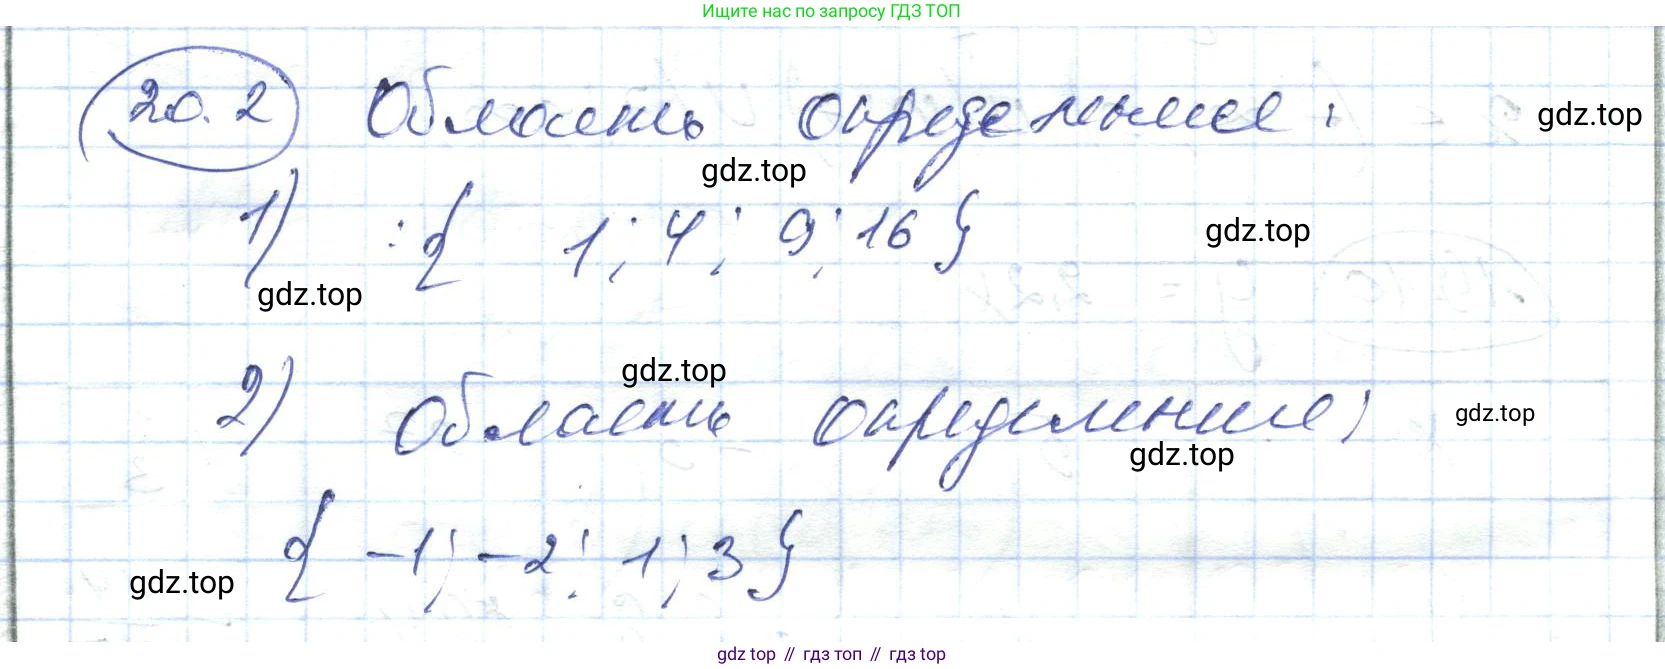 Ищите нас по запросу ГДЗ ТОП
20.2 Область определения: gdz.top
gdz.top
1) : { 1; 4; 9; 16 } gdz.top
gdz.top
gdz.top
2) Область определение; gdz.top
gdz.top
{ -1; -2; 1; 3 }
gdz.top
gdz top // гдз топ // gdz top